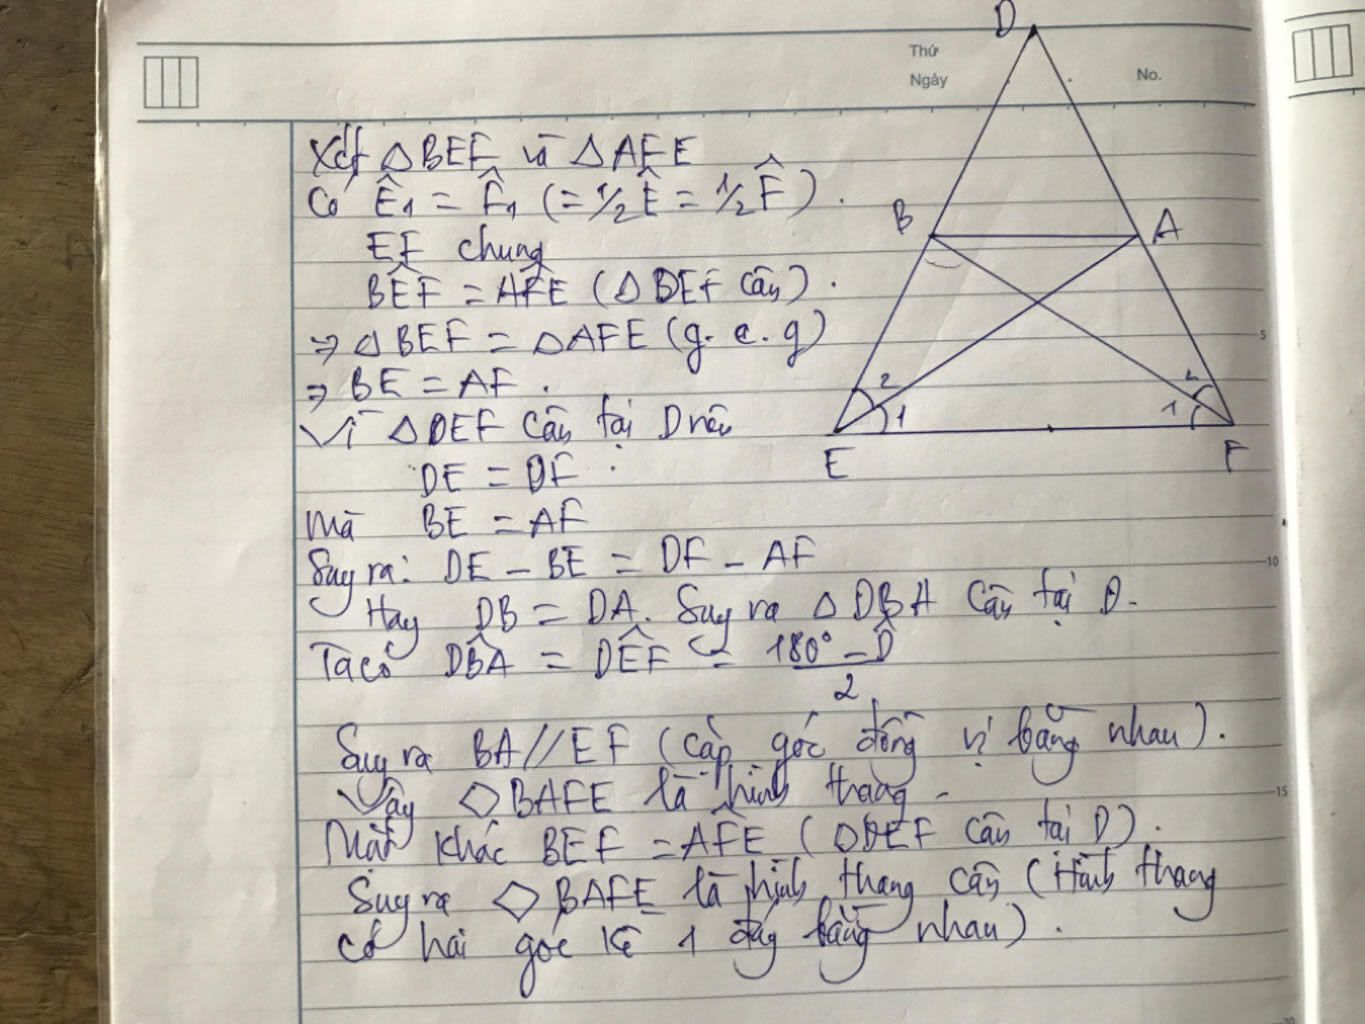 D
Thứ
Ngày
No.
Xét △BEF và △AFE
Có Ê₁ = F̂₁ (= 1/2 Ê = 1/2 F̂).
EF chung
BÊF = AF̂E (△DEF cân).
⇒ △BEF = △AFE (g.c.g)
⇒ BE = AF.
Vì △DEF cân tại D nên
DE = DF.
Mà BE = AF
Suy ra: DE - BE = DF - AF
Hay DB = DA. Suy ra △DBA cân tại D.
Ta có DB̂A = DÊF = (180° - D̂)/2
Suy ra BA//EF (cặp góc đồng vị bằng nhau).
Vậy ◇BAFE là hình thang.
Mặt khác BEF = AF̂E (△DEF cân tại D).
Suy ra ◇BAFE là hình thang cân (Hình thang
có hai góc kề 1 đáy bằng nhau).
B
A
2
1
2
1
E
F
5
10
15
20